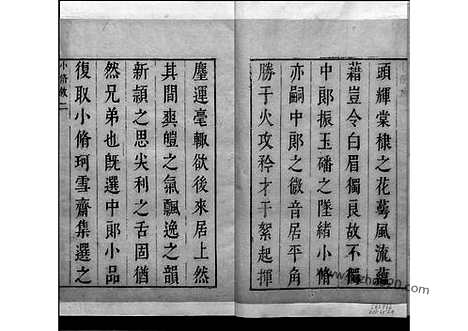 頭輝棠棣之花萼風流蘊
藉豈令白眉獨良故不獨
中郎振玉磻之墜緒小脩
亦嗣中郎之徽音居平角
勝于火攻矜才于絮起揮
麈運毫輒欲後來居上然
其間爽皚之氣飄逸之韻
新頴之思尖利之舌固猶
然兄弟也旣選中郎小品
復取小脩珂雪齋集選之
小脩敘 二